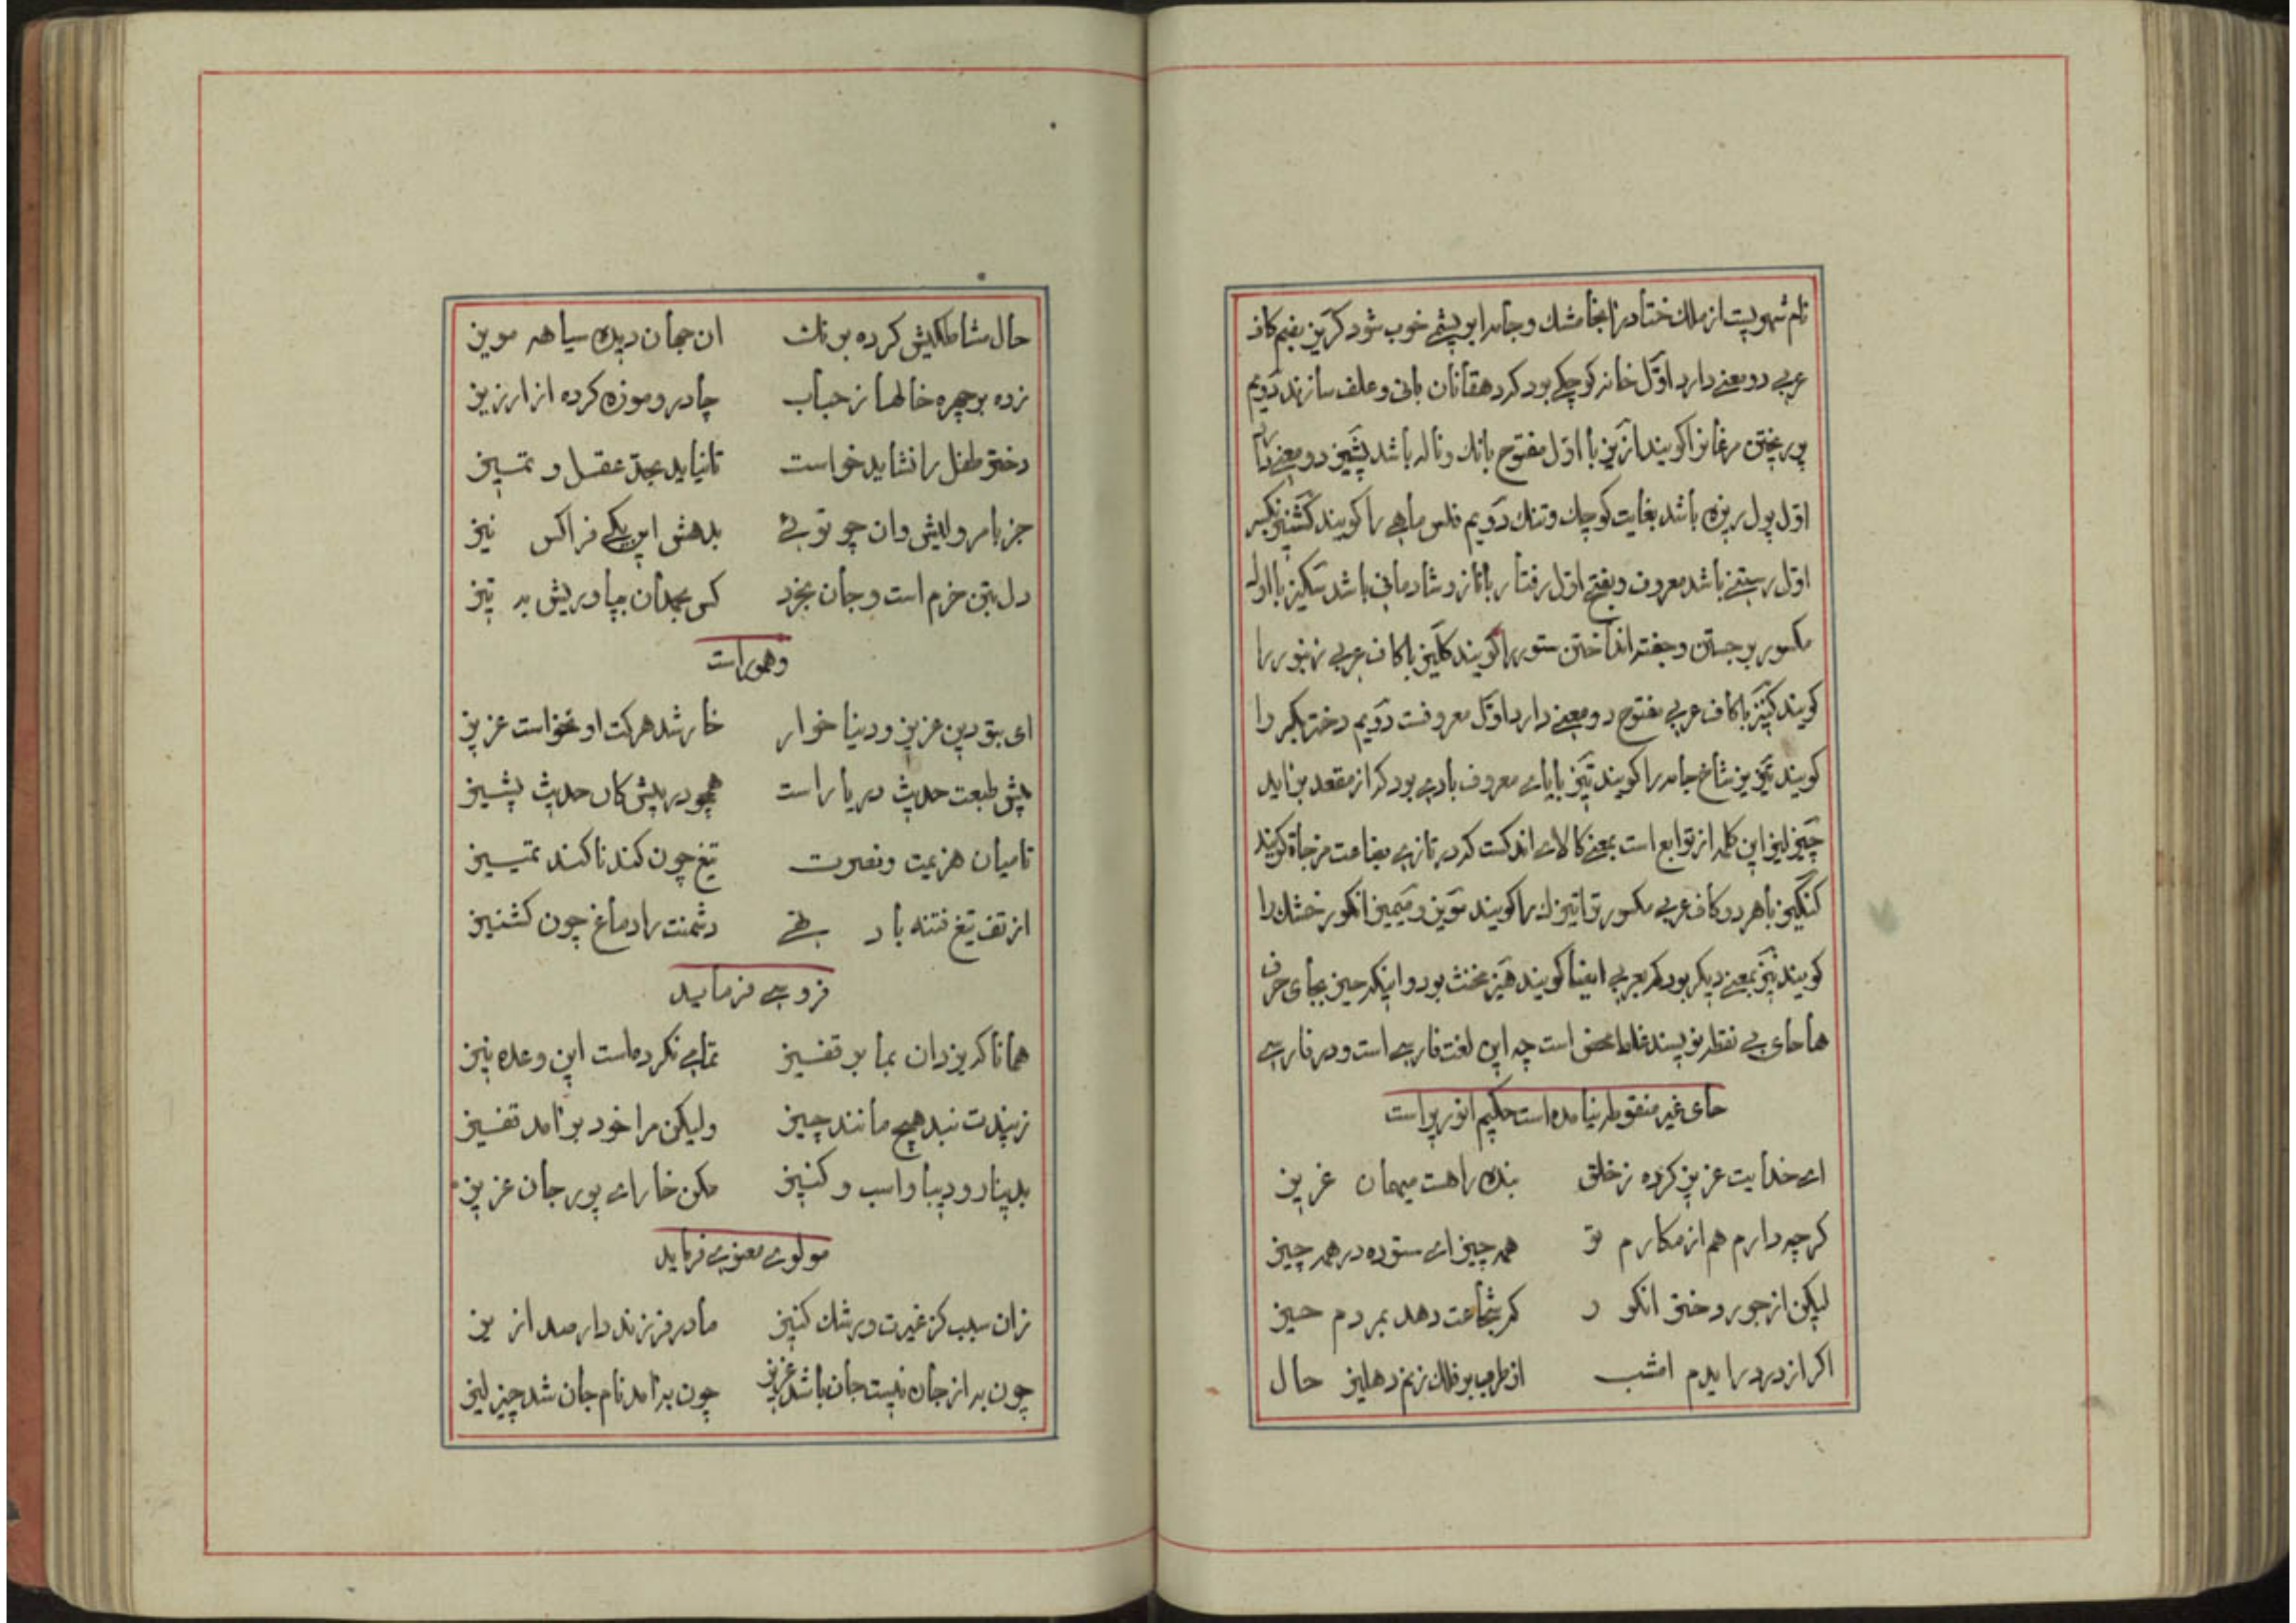 نام شهریست از ملك ختا در انجا مشك و جامه ابریشمی خوب شود کریز بضم کاف
عربی دو معنی دارد اوّل خانه کوچکی بود که دهقانان بانی و علف سازند دویم
پر ریختن مرغانرا کویند ازیز با اوّل مفتوح بانك و ناله باشد پشیز دو معنی دارد
اوّل پول ریزه باشد بغایت کوچك و تنك دویم فلس ماهی را کویند کشنیز بکسر
اوّل رستنی باشد معروف و بفتح اوّل رفتار با ناز و شادمانی باشد سکیز با اول
مکسور برجستن و جفته انداختن ستور را کویند کلیز با کاف عربی زنبور را
کویند کنیز با کاف عربی مفتوح دو معنی دارد اوّل معروفست دویم دختر بکر را
کویند تیریز شاخ جامه را کویند تیز با یای معروف بادی بود که از مقعد براید
چیز لیز این کلمه از توابع است بمعنی کالای اندکست که در تازی بضاعت مزجاة کویند
کنکیز با هر دو کاف عربی مکسور تراتیزك را کویند مویز و میمیز انکور خشك را
کویند نیز بمعنی دیکر بود که بعربی ایضا کویند هیز مخنث بود و اینکه حیز بجای حرف
ها حای بی نقطه نویسند غلط محض است چه این لغت فارسی است و در فارسی
حای غیر منقوطه نیامده است حکیم انوریراست
ای خدایت عزیز کرده ز خلق بنده راهست میهمان عزیز
کرچه دارم هم از مکارم تو همه چیز ای ستوده در همه چیز
لیکن از جور دختر انکور که شجاعت دهد بمردم حیز
اکر از در درایدم امشب از طرب بر فلك زنم دهلیز حال
حال مشاطکیش کرده برنك ان جهان دیده سیاهه مویز
زده بر چهره خالها ز حباب چادر و موزه کرده از ارزیز
دختر طفل را نشاید خواست تا نیاید بحدّ عقل و تمییز
جز بامر ولیش وان چو توئی بدهش این یکی فراکس نیز
دل بتن خرم است و جان بخرد کس بجهان بیاوریش به تیز
وهموراست
ای بتو دین عزیز و دنیا خوار خار شد هرکت او نخواست عزیز
پیش طبعت حدیث دریا راست همچو در پیش کان حدیث پشیز
تا میان هزیمت و نصرت تیغ چون کند نا کند تمییز
از تف تیغ فتنه بار تهی دشمنت را دماغ چون کشنیز
فردوسی فرماید
همانا که یزدان بما بر قفیز تمامی نکرده‌است این وعده نیز
زبیدت نبد هیچ مانند چیز ولیکن مرا خود برآمد قفیز
بدینار و دیبا و اسب و کنیز مکن خار ای پور جان عزیز
مولوی معنوی فرماید
زان سبب کز غیرت و رشك کنیز مادر فرزند دارد صد ازیز
چون به از جان نیست جان باشد عزیز چون به آمد نام جان شد چیز لیز